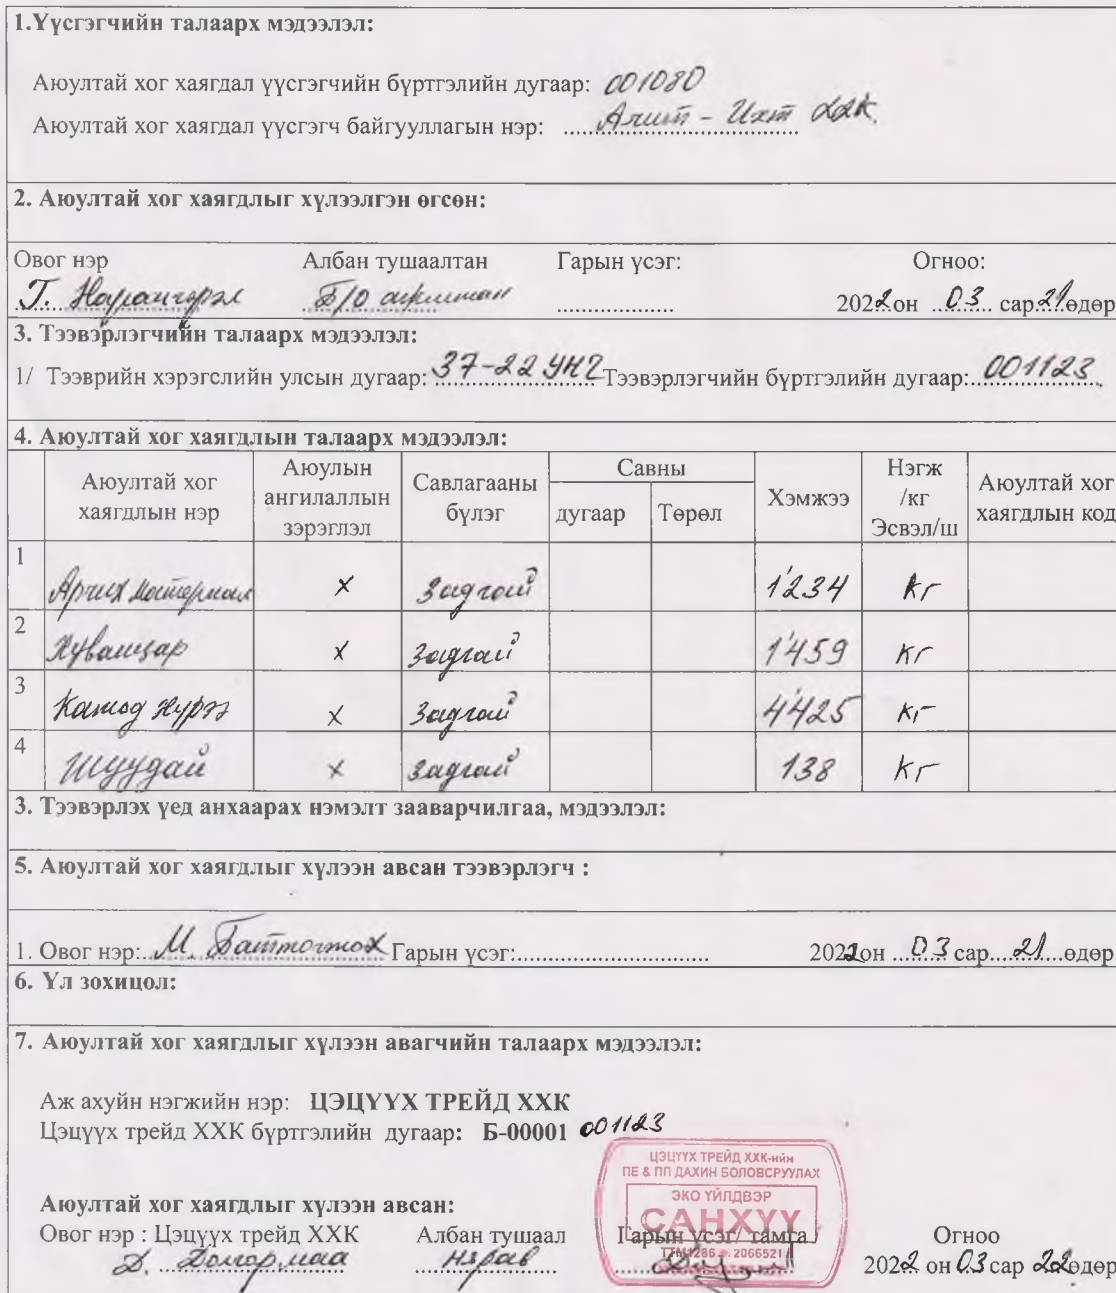 1.Үүсгэгчийн талаарх мэдээлэл:
Аюултай хог хаягдал үүсгэгчийн бүртгэлийн дугаар: 001080
Аюултай хог хаягдал үүсгэгч байгууллагын нэр: Ачит - Ихт ХХК.
2. Аюултай хог хаягдлыг хүлээлгэн өгсөн:
Овог нэр Албан тушаалтан Гарын үсэг: Огноо:
Г. Нарангэрэл Б/О ажилтан .................. 2022 он ..03... сар 21 өдөр
3. Тээвэрлэгчийн талаарх мэдээлэл:
1/ Тээврийн хэрэгслийн улсын дугаар: 37-22 УНЧ Тээвэрлэгчийн бүртгэлийн дугаар: 001123
4. Аюултай хог хаягдлын талаарх мэдээлэл:
Аюултай хог хаягдлын нэр Аюулын ангилаллын зэрэглэл Савлагааны бүлэг Савны дугаар Төрөл Хэмжээ Нэгж /кг Эсвэл/ш Аюултай хог хаягдлын код
1 Арчих материал x Задгай 1'234 кг
2 Хуванцар x Задгай 1'459 кг
3 Катод хүрээ x Задгай 4'425 кг
4 Шуудай x Задгай 138 кг
3. Тээвэрлэх үед анхаарах нэмэлт зааварчилгаа, мэдээлэл:
5. Аюултай хог хаягдлыг хүлээн авсан тээвэрлэгч :
1. Овог нэр: М. Баттогтох Гарын үсэг:.............................. 2022 он ...03 сар....21...өдөр
6. Үл зохицол:
7. Аюултай хог хаягдлыг хүлээн авагчийн талаарх мэдээлэл:
Аж ахуйн нэгжийн нэр: ЦЭЦҮҮХ ТРЕЙД ХХК
Цэцүүх трейд ХХК бүртгэлийн дугаар: Б-00001 001123
ЦЭЦҮҮХ ТРЕЙД ХХК-ийн
ПЕ & ПП ДАХИН БОЛОВСРУУЛАХ
ЭКО ҮЙЛДВЭР
САНХҮҮ
2066521
Аюултай хог хаягдлыг хүлээн авсан:
Овог нэр : Цэцүүх трейд ХХК Албан тушаал Гарын үсэг/ тамга Огноо
Д. Долгормаа Нярав 2022 он 03 сар 22 өдөр